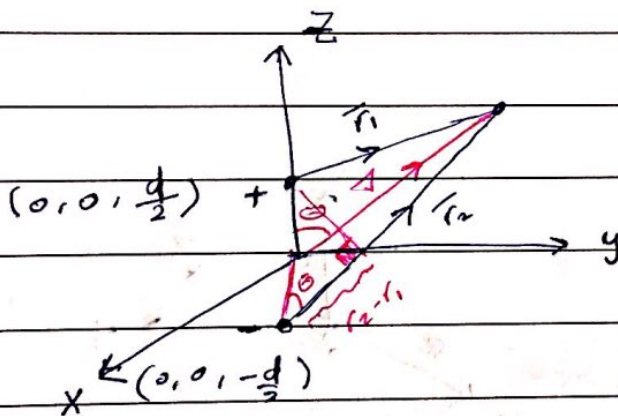 Z
r₁
(0, 0, d/2) +
θ
r₂
y
θ
-
r₂-r₁
(0, 0, -d/2)
X